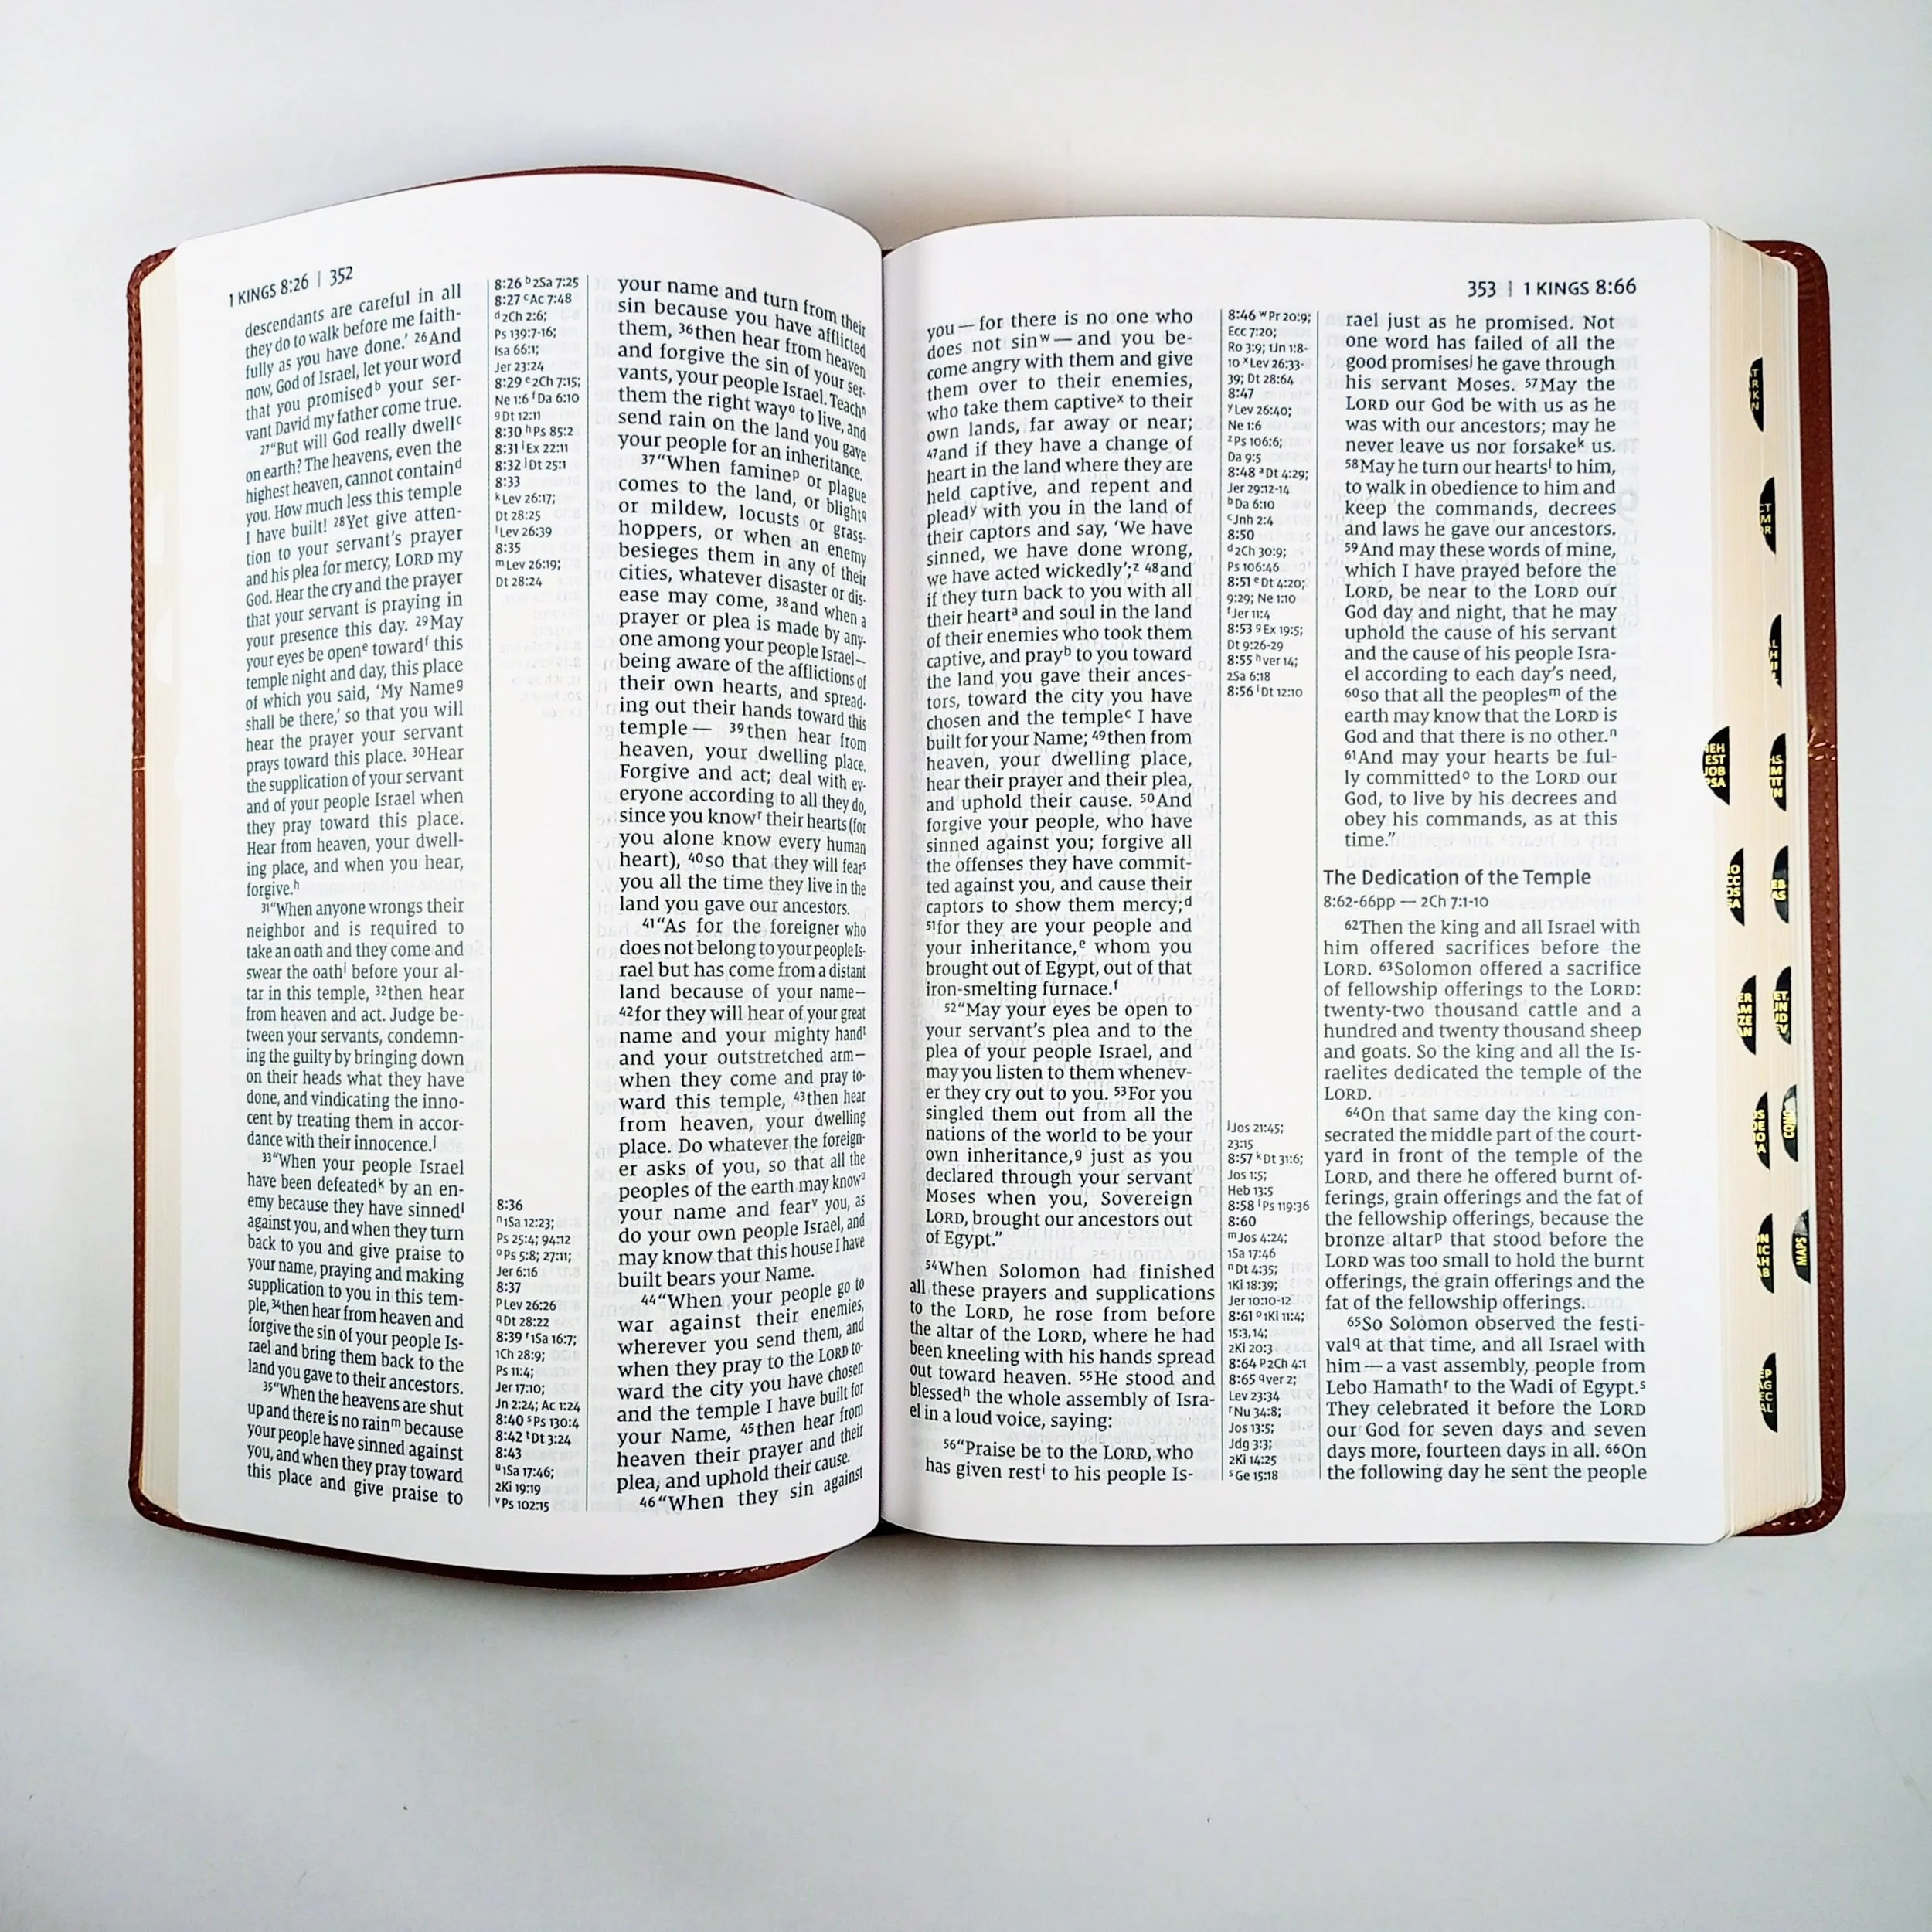 1 KINGS 8:26 | 352
descendants are careful in all
they do to walk before me faith-
fully as you have done.’ 26And
now, God of Israel, let your word
that you promisedb your ser-
vant David my father come true.
27“But will God really dwellc
on earth? The heavens, even the
highest heaven, cannot containd
you. How much less this temple
I have built! 28Yet give atten-
tion to your servant’s prayer
and his plea for mercy, LORD my
God. Hear the cry and the prayer
that your servant is praying in
your presence this day. 29May
your eyes be opene towardf this
temple night and day, this place
of which you said, ‘My Nameg
shall be there,’ so that you will
hear the prayer your servant
prays toward this place. 30Hear
the supplication of your servant
and of your people Israel when
they pray toward this place.
Hear from heaven, your dwell-
ing place, and when you hear,
forgive.h
31“When anyone wrongs their
neighbor and is required to
take an oath and they come and
swear the oathi before your al-
tar in this temple, 32then hear
from heaven and act. Judge be-
tween your servants, condemn-
ing the guilty by bringing down
on their heads what they have
done, and vindicating the inno-
cent by treating them in accor-
dance with their innocence.j
33“When your people Israel
have been defeatedk by an en-
emy because they have sinnedl
against you, and when they turn
back to you and give praise to
your name, praying and making
supplication to you in this tem-
ple, 34then hear from heaven and
forgive the sin of your people Is-
rael and bring them back to the
land you gave to their ancestors.
35“When the heavens are shut
up and there is no rainm because
your people have sinned against
you, and when they pray toward
this place and give praise to
8:26 b2Sa 7:25
8:27 cAc 7:48
d2Ch 2:6;
Ps 139:7-16;
Isa 66:1;
Jer 23:24
8:29 e2Ch 7:15;
Ne 1:6 fDa 6:10
gDt 12:11
8:30 hPs 85:2
8:31 iEx 22:11
8:32 jDt 25:1
8:33
kLev 26:17;
Dt 28:25
lLev 26:39
8:35
mLev 26:19;
Dt 28:24
8:36
n1Sa 12:23;
Ps 25:4; 94:12
oPs 5:8; 27:11;
Jer 6:16
8:37
pLev 26:26
qDt 28:22
8:39 r1Sa 16:7;
1Ch 28:9;
Ps 11:4;
Jer 17:10;
Jn 2:24; Ac 1:24
8:40 sPs 130:4
8:42 tDt 3:24
8:43
u1Sa 17:46;
2Ki 19:19
vPs 102:15
your name and turn from their
sin because you have afflicted
them, 36then hear from heaven
and forgive the sin of your ser-
vants, your people Israel. Teachn
them the right wayo to live, and
send rain on the land you gave
your people for an inheritance.
37“When faminep or plague
comes to the land, or blightq
or mildew, locusts or grass-
hoppers, or when an enemy
besieges them in any of their
cities, whatever disaster or dis-
ease may come, 38and when a
prayer or plea is made by any-
one among your people Israel—
being aware of the afflictions of
their own hearts, and spread-
ing out their hands toward this
temple— 39then hear from
heaven, your dwelling place.
Forgive and act; deal with ev-
eryone according to all they do,
since you knowr their hearts (for
you alone know every human
heart), 40so that they will fears
you all the time they live in the
land you gave our ancestors.
41“As for the foreigner who
does not belong to your people Is-
rael but has come from a distant
land because of your name—
42for they will hear of your great
name and your mighty handt
and your outstretched arm—
when they come and pray to-
ward this temple, 43then hear
from heaven, your dwelling
place. Do whatever the foreign-
er asks of you, so that all the
peoples of the earth may knowu
your name and fearv you, as
do your own people Israel, and
may know that this house I have
built bears your Name.
44“When your people go to
war against their enemies,
wherever you send them, and
when they pray to the LORD to-
ward the city you have chosen
and the temple I have built for
your Name, 45then hear from
heaven their prayer and their
plea, and uphold their cause.
46“When they sin against
353 | 1 KINGS 8:66
you—for there is no one who
does not sinw—and you be-
come angry with them and give
them over to their enemies,
who take them captivex to their
own lands, far away or near;
47and if they have a change of
heart in the land where they are
held captive, and repent and
pleady with you in the land of
their captors and say, ‘We have
sinned, we have done wrong,
we have acted wickedly’;z 48and
if they turn back to you with all
their hearta and soul in the land
of their enemies who took them
captive, and prayb to you toward
the land you gave their ances-
tors, toward the city you have
chosen and the templec I have
built for your Name; 49then from
heaven, your dwelling place,
hear their prayer and their plea,
and uphold their cause. 50And
forgive your people, who have
sinned against you; forgive all
the offenses they have commit-
ted against you, and cause their
captors to show them mercy;d
51for they are your people and
your inheritance,e whom you
brought out of Egypt, out of that
iron-smelting furnace.f
52“May your eyes be open to
your servant’s plea and to the
plea of your people Israel, and
may you listen to them whenev-
er they cry out to you. 53For you
singled them out from all the
nations of the world to be your
own inheritance,g just as you
declared through your servant
Moses when you, Sovereign
LORD, brought our ancestors out
of Egypt.”
54When Solomon had finished
all these prayers and supplications
to the LORD, he rose from before
the altar of the LORD, where he had
been kneeling with his hands spread
out toward heaven. 55He stood and
blessedh the whole assembly of Isra-
el in a loud voice, saying:
56“Praise be to the LORD, who
has given resti to his people Is-
8:46 wPr 20:9;
Ecc 7:20;
Ro 3:9; 1Jn 1:8-
10 xLev 26:33-
39; Dt 28:64
8:47
yLev 26:40;
Ne 1:6
zPs 106:6;
Da 9:5
8:48 aDt 4:29;
Jer 29:12-14
bDa 6:10
cJnh 2:4
8:50
d2Ch 30:9;
Ps 106:46
8:51 eDt 4:20;
9:29; Ne 1:10
fJer 11:4
8:53 gEx 19:5;
Dt 9:26-29
8:55 hver 14;
2Sa 6:18
8:56 iDt 12:10
jJos 21:45;
23:15
8:57 kDt 31:6;
Jos 1:5;
Heb 13:5
8:58 lPs 119:36
8:60
mJos 4:24;
1Sa 17:46
nDt 4:35;
1Ki 18:39;
Jer 10:10-12
8:61 o1Ki 11:4;
15:3,14;
2Ki 20:3
8:64 p2Ch 4:1
8:65 qver 2;
Lev 23:34
rNu 34:8;
Jos 13:5;
Jdg 3:3;
2Ki 14:25
sGe 15:18
rael just as he promised. Not
one word has failed of all the
good promisesj he gave through
his servant Moses. 57May the
LORD our God be with us as he
was with our ancestors; may he
never leave us nor forsakek us.
58May he turn our heartsl to him,
to walk in obedience to him and
keep the commands, decrees
and laws he gave our ancestors.
59And may these words of mine,
which I have prayed before the
LORD, be near to the LORD our
God day and night, that he may
uphold the cause of his servant
and the cause of his people Isra-
el according to each day’s need,
60so that all the peoplesm of the
earth may know that the LORD is
God and that there is no other.n
61And may your hearts be ful-
ly committedo to the LORD our
God, to live by his decrees and
obey his commands, as at this
time.”
The Dedication of the Temple
8:62-66pp — 2Ch 7:1-10
62Then the king and all Israel with
him offered sacrifices before the
LORD. 63Solomon offered a sacrifice
of fellowship offerings to the LORD:
twenty-two thousand cattle and a
hundred and twenty thousand sheep
and goats. So the king and all the Is-
raelites dedicated the temple of the
LORD.
64On that same day the king con-
secrated the middle part of the court-
yard in front of the temple of the
LORD, and there he offered burnt of-
ferings, grain offerings and the fat of
the fellowship offerings, because the
bronze altarp that stood before the
LORD was too small to hold the burnt
offerings, the grain offerings and the
fat of the fellowship offerings.
65So Solomon observed the festi-
valq at that time, and all Israel with
him—a vast assembly, people from
Lebo Hamathr to the Wadi of Egypt.s
They celebrated it before the LORD
our God for seven days and seven
days more, fourteen days in all. 66On
the following day he sent the people
NEH
EST
JOB
PSA
CONC
MAPS